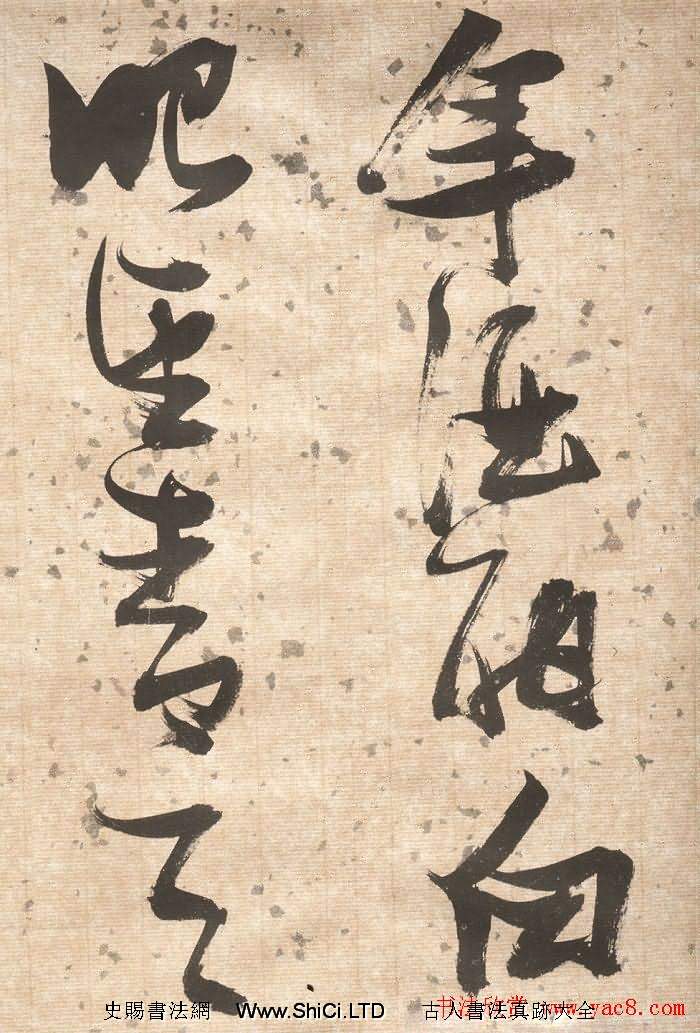 年白
眼望青天
史賜書法網 Www.ShiCi.LTD 古人書法真跡大全
书法欣赏 www.yac8.com